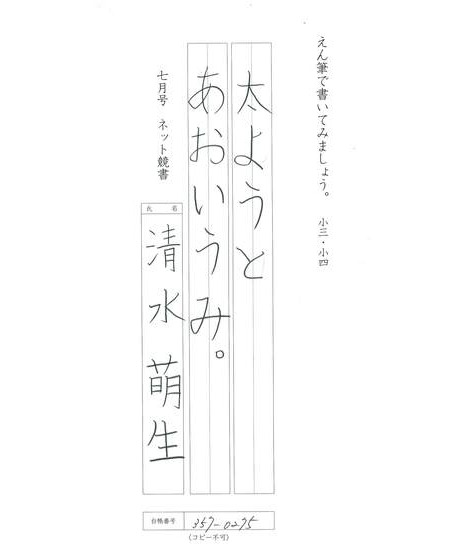 えん筆で書いてみましょう。 小三・小四
太ようと
あおいうみ。
七月号 ネット競書
氏名
清水萌生
台帳番号 357-0275
(コピー不可)